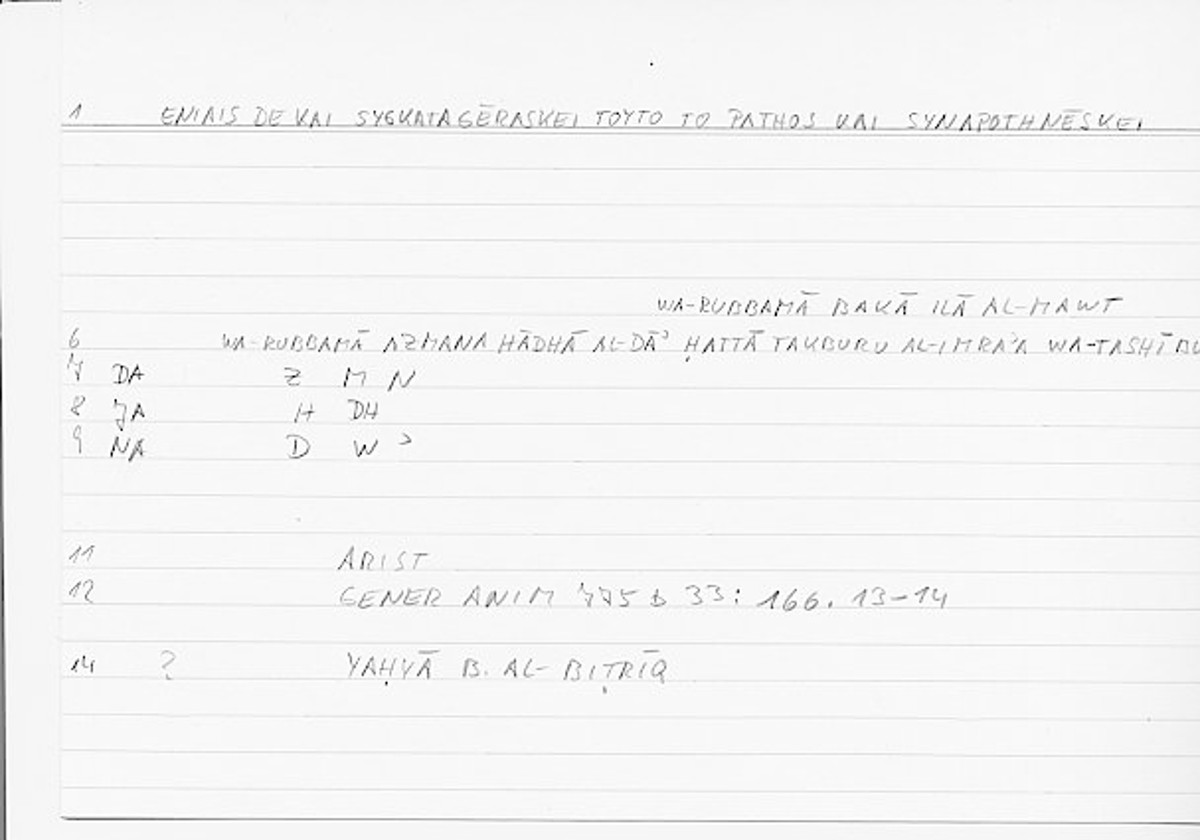 1 ENIAIS DE KAI SYGKATAGĒRASKEI TOYTO TO PATHOS KAI SYNAPOTHNĒSKEI
WA-RUBBAMĀ BAKĀ ILĀ AL-MAWT
6 WA-RUBBAMĀ AZMANA HĀDHĀ AL-DĀʾ ḤATTĀ TAKBURU AL-IMRAʾA WA-TASHĪBU
7 DA Z M N
8 JA H DH
9 NA D W ʾ
11 ARIST
12 GENER ANIM 775 b 33: 166. 13-14
14 ? YAḤYĀ B. AL-BIṬRĪQ